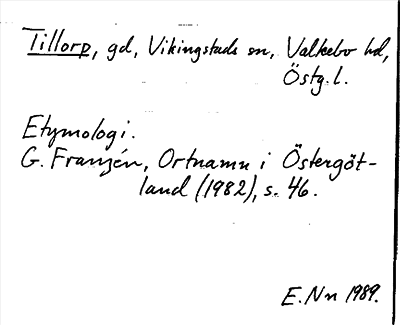 Tillorp, gd, Vikingstads sn, Valkebo hd,
Östg.l.
Etymologi.
G. Franzén, Ortnamn i Östergöt-
land (1982), s. 46.
E.Nn 1989.